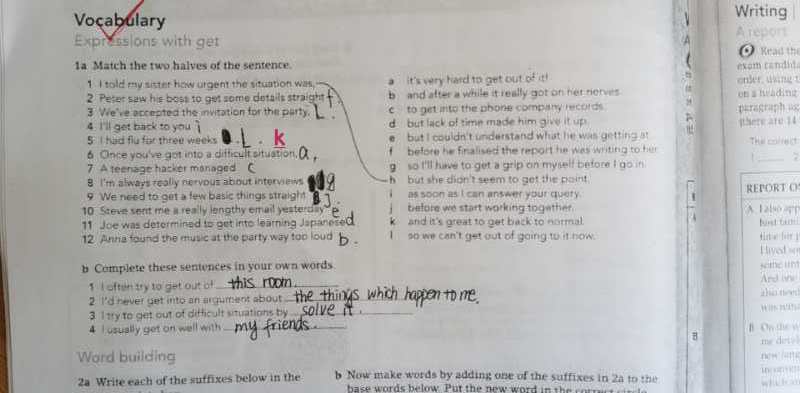 Vocabulary
Expressions with get
1a Match the two halves of the sentence.
1 I told my sister how urgent the situation was,
2 Peter saw his boss to get some details straight f.
3 We've accepted the invitation for the party, L.
4 I'll get back to you i
5 I had flu for three weeks L. k
6 Once you've got into a difficult situation, a,
7 A teenage hacker managed C
8 I'm always really nervous about interviews g
9 We need to get a few basic things straight j.
10 Steve sent me a really lengthy email yesterday e
11 Joe was determined to get into learning Japanese d
12 Anna found the music at the party way too loud b.
a it's very hard to get out of it!
b and after a while it really got on her nerves.
c to get into the phone company records.
d but lack of time made him give it up.
e but I couldn't understand what he was getting at.
f before he finalised the report he was writing to her.
g so I'll have to get a grip on myself before I go in.
h but she didn't seem to get the point.
i as soon as I can answer your query.
j before we start working together.
k and it's great to get back to normal.
l so we can't get out of going to it now.
b Complete these sentences in your own words.
1 I often try to get out of this room.
2 I'd never get into an argument about the things which happen to me.
3 I try to get out of difficult situations by solve it.
4 I usually get on well with my friends.
Word building
2a Write each of the suffixes below in the
b Now make words by adding one of the suffixes in 2a to the
base words below. Put the new word in the correct circle
Writing
A report
Read the
exam candida
order, using t
on a heading
paragraph ag
there are 14
The correct
1 2
REPORT O
A I also app
host fam
time for p
I lived
some
And one
also need
was
B On the w
me devel
new lang
inconven
which
B